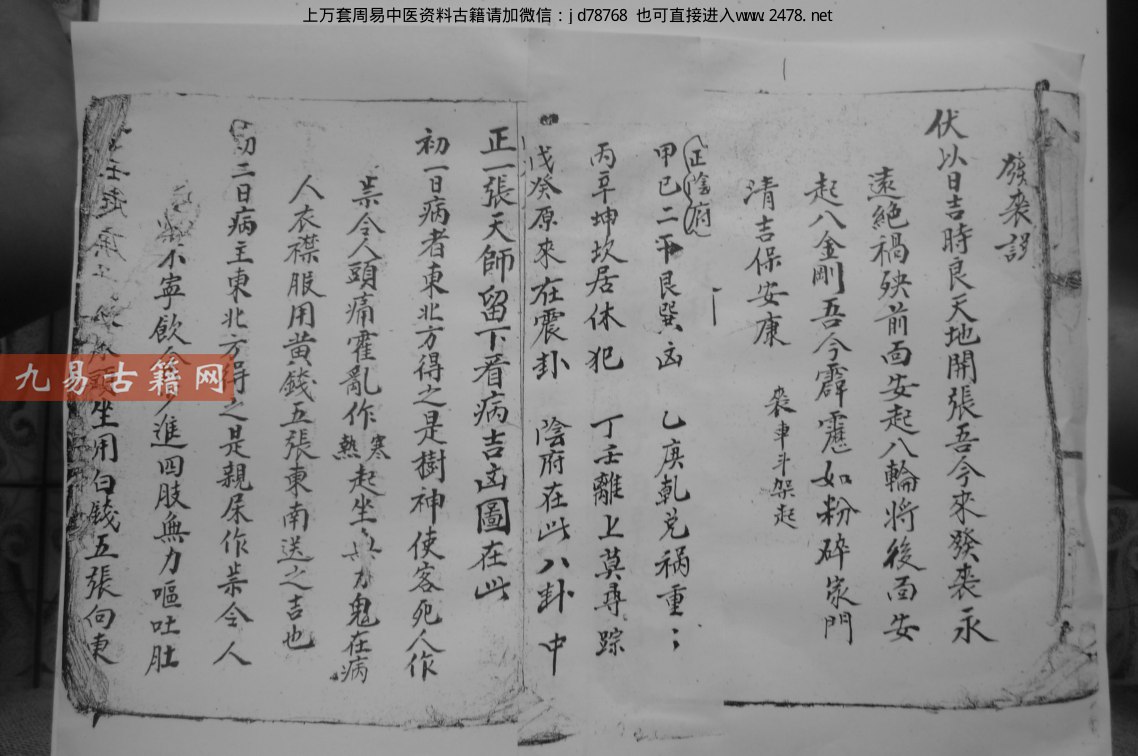 上万套周易中医资料古籍请加微信：jd78768 也可直接进入www.2478.net
發喪
伏以日吉時良天地開張吾今來發喪永
遠絕禍殃前面安起八輪將後面安
起八金剛吾今霹靂如粉碎家門
清吉保安康
喪車斗架起
正陰府
甲己二干艮巽凶 乙庚乹兑祸重〻
丙辛坤坎居休犯 丁壬離上莫尋踪
戊癸原來在震卦 陰府在此八卦中
正一張天師留下看病吉凶圖在此
初一日病者東北方得之是樹神使客死人作
祟令人頭痛霍亂作寒熱起坐力鬼在病
人衣襟服用黄錢五張東南送之吉也
初三日病主東北方得之是親床作祟令人
不寧飲進四肢無力嘔吐肚
坐用白錢五張向東
九易古籍网